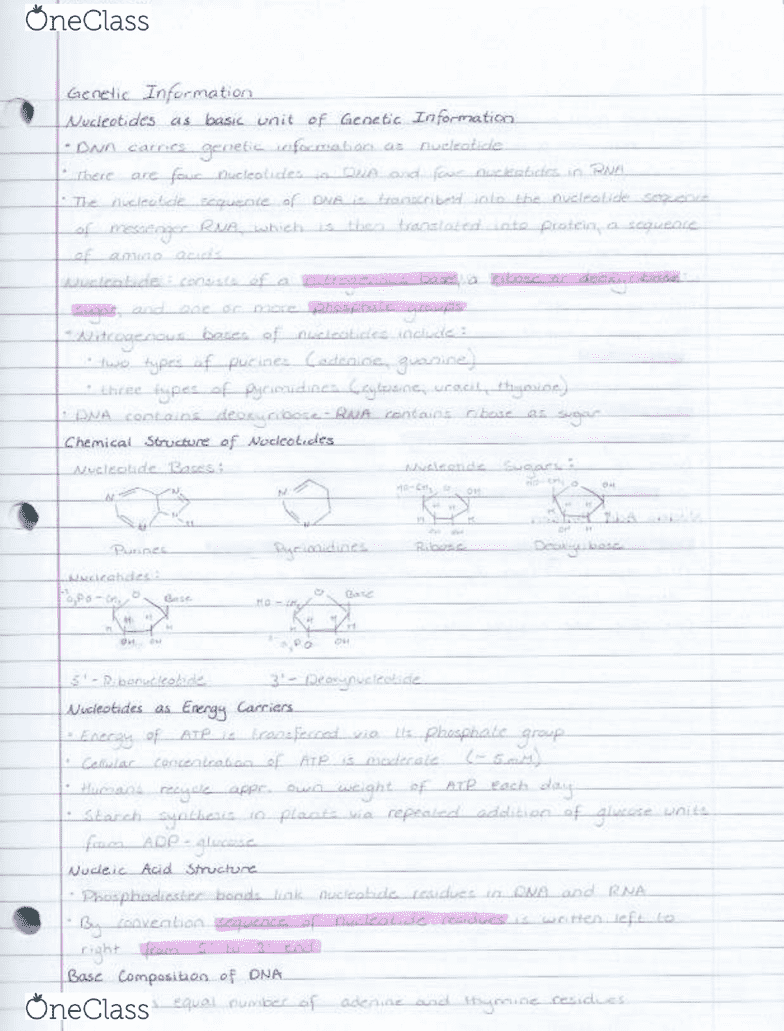 OneClass
Genetic Information
Nucleotides as basic unit of Genetic Information
• DNA carries genetic information as nucleotide
• There are four nucleotides in DNA and four nucleotides in RNA
• The nucleotide sequence of DNA is transcribed into the nucleotide sequence
of messenger RNA, which is then translated into protein, a sequence
of amino acids
Nucleotide: consists of a nitrogenous base, a ribose or deoxyribose
sugar, and one or more phosphate groups
• Nitrogenous bases of nucleotides include:
• two types of purines (adenine, guanine)
• three types of pyrimidines (cytosine, uracil, thymine)
• DNA contains deoxyribose - RNA contains ribose as sugar
Chemical Structure of Nucleotides
Nucleotide Bases: Nucleotide Sugars:
N N N N H N N HO-CH2 O OH H H H H OH OH HO-CH2 O OH H H H OH H
Purines Pyrimidines Ribose Deoxyribose
Nucleotides:
O3PO-CH2 O Base H H H H OH OH HO-CH2 O Base H H H O3PO OH
5'-Ribonucleotide 3'-Deoxynucleotide
Nucleotides as Energy Carriers
• Energy of ATP is transferred via its phosphate group
• Cellular concentration of ATP is moderate (~5mM)
• Humans recycle appr. own weight of ATP each day
• Starch synthesis in plants via repeated addition of glucose units
from ADP-glucose
Nucleic Acid Structure
• Phosphodiester bonds link nucleotide residues in DNA and RNA
• By convention sequence of nucleotide residues is written left to
right from 5' to 3' end
Base Composition of DNA
equal number of adenine and thymine residues
OneClass